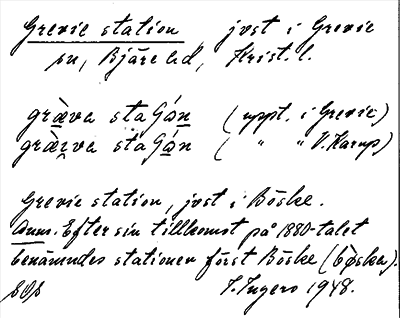 Grevie station, jvst i Grevie
sn, Bjäre hd, Krist. l.
græ̀va staGán (uppt. i Grevie)
græ̀va staGán ( " " V. Karup)
Grevie station, jvst i Böske.
Anm. Efter sin tillkomst på 1880-talet
benämndes stationen först Böske (bø̀ska).
I. Ingers 1948.